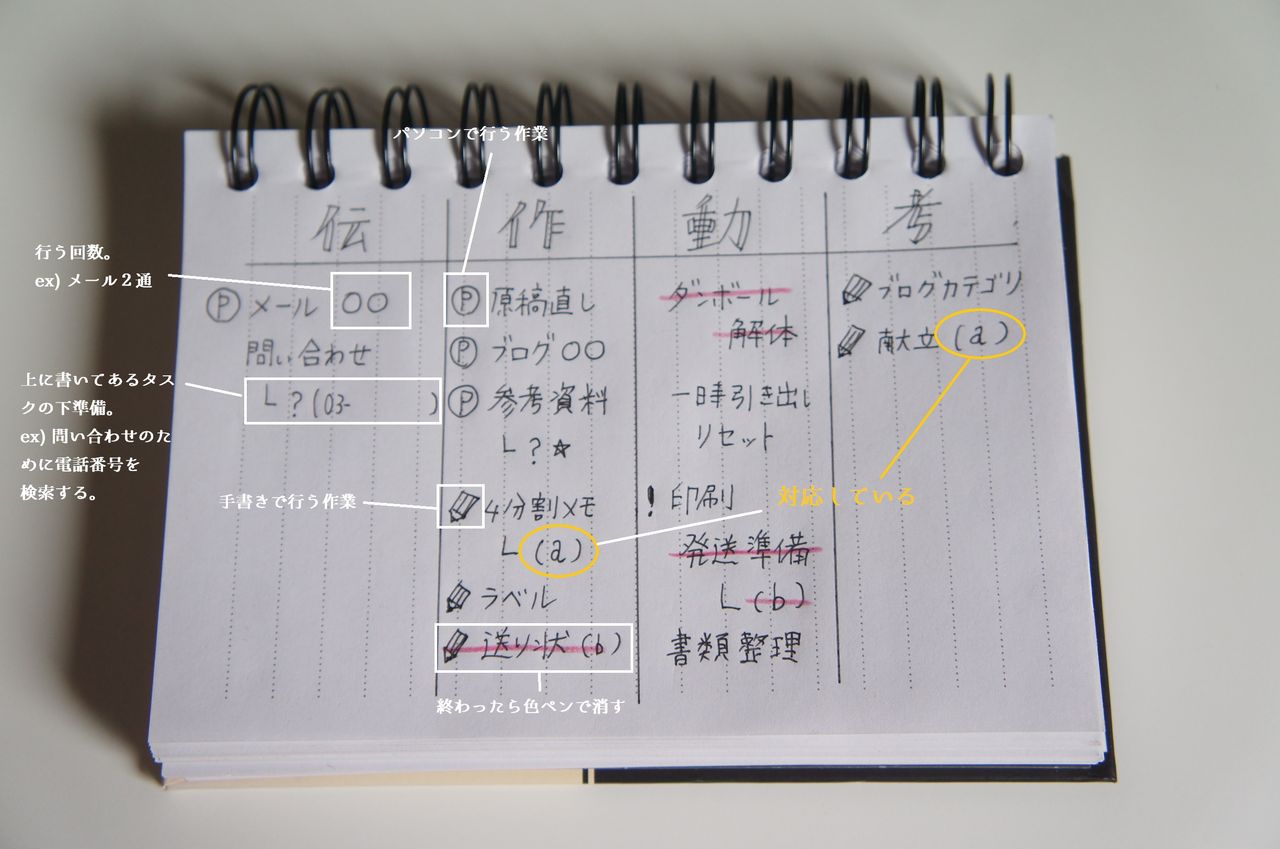 パソコンで行う作業
行う回数。
ex) メール２通
上に書いてあるタス
クの下準備。
ex) 問い合わせのた
めに電話番号を
検索する。
手書きで行う作業
終わったら色ペンで消す
対応している
伝
Ⓟ メール 〇〇
問い合わせ
└ ? (03- )
作
Ⓟ 原稿直し
Ⓟ ブログ 〇〇
Ⓟ 参考資料
└ ? ☆
4分割メモ
└ (a)
ラベル
送り状 (b)
動
ダンボール
解体
一時引き出し
リセット
! 印刷
発送準備
└ (b)
書類整理
考
ブログカテゴリ
献立 (a)